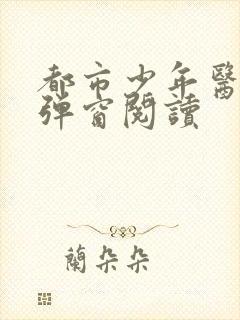 都市少年醫
彈窗閱讀
蘭朵朵